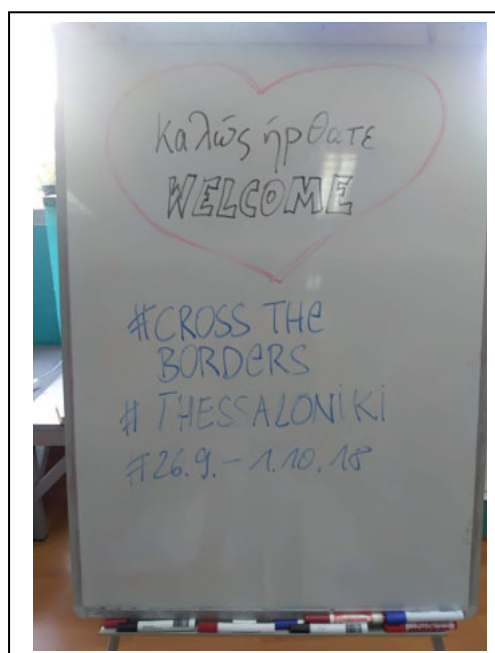 Καλώς ήρθατε
WELCOME
#CROSS THE
BORDERS
# THESSALONIKI
#26.9.-1.10.18